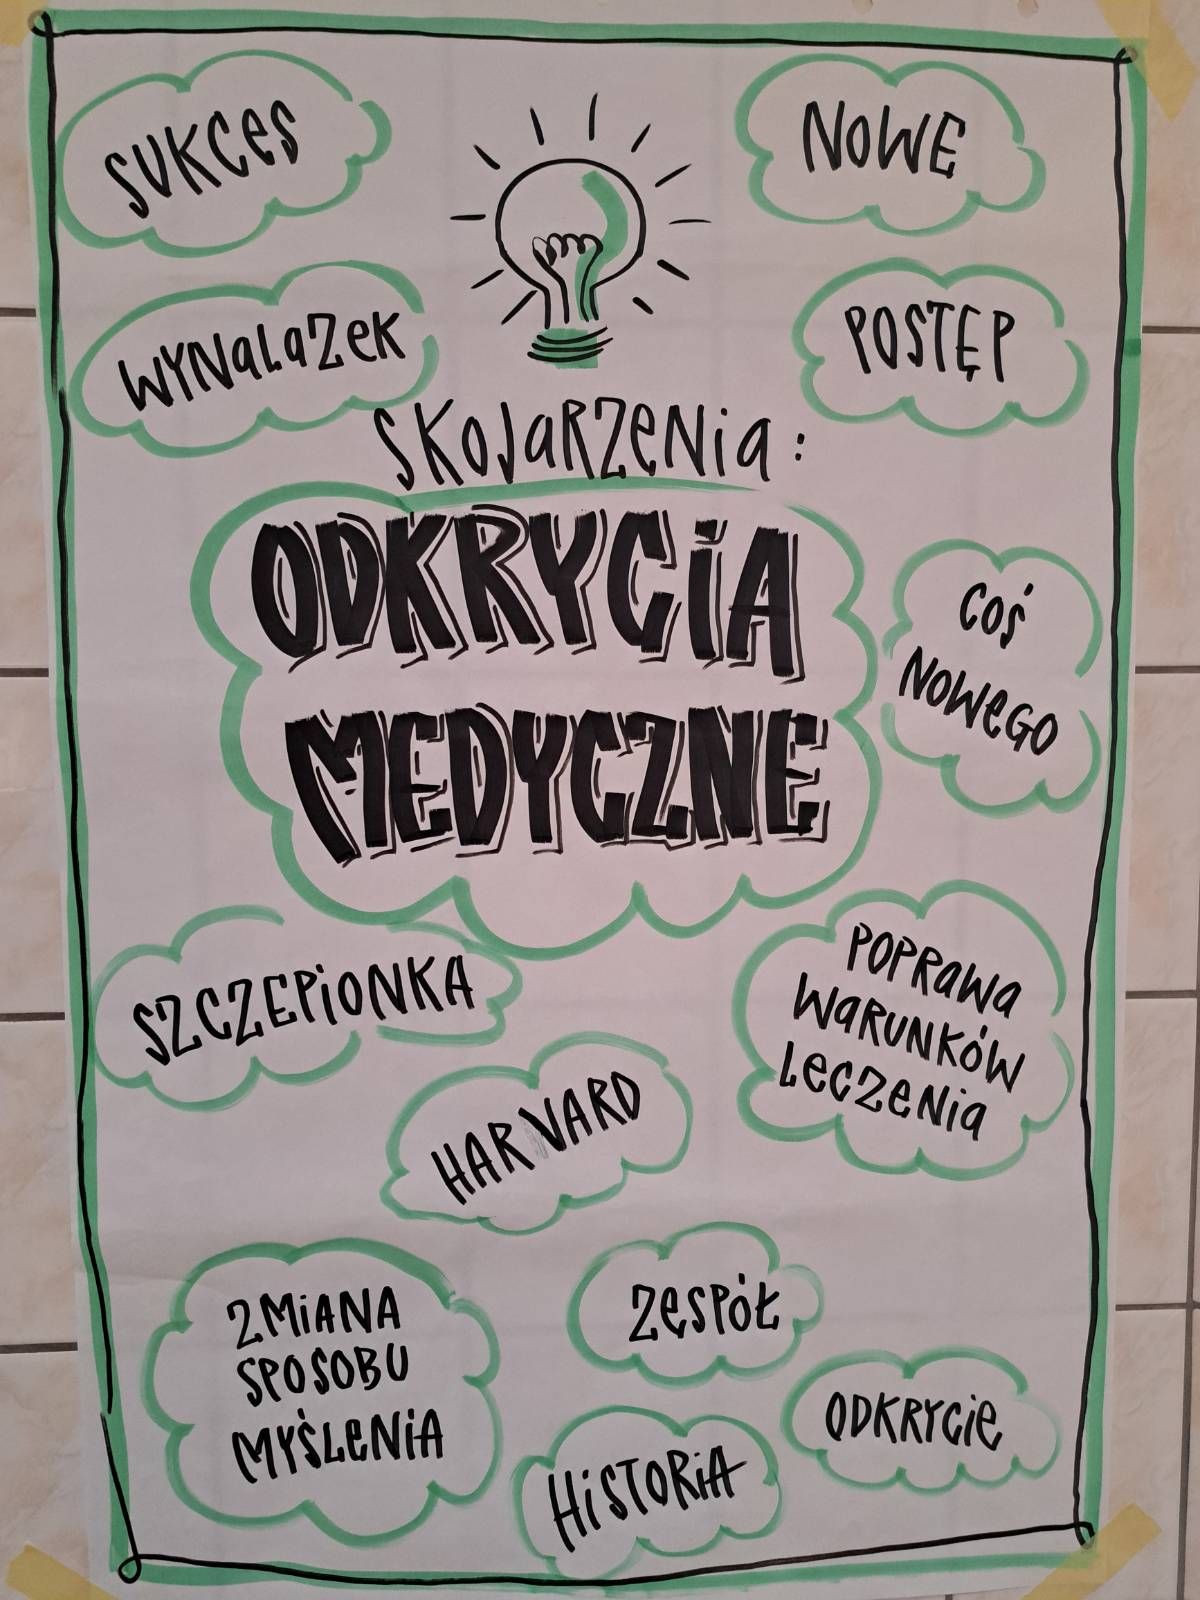 SUKCES
NOWE
WYNALAZEK
POSTĘP
SKOJARZENIA:
ODKRYCIA
MEDYCZNE
COŚ
NOWEGO
SZCZEPIONKA
POPRAWA
WARUNKÓW
LECZENIA
HARVARD
ZMIANA
SPOSOBU
MYŚLENIA
ZESPÓŁ
ODKRYCIE
HISTORIA